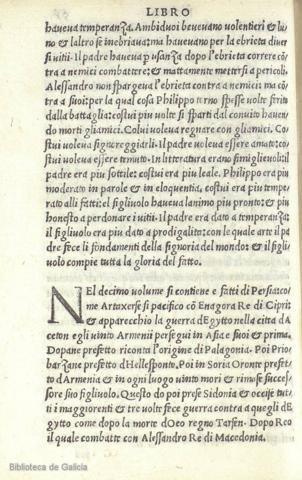 LIBRO
haueva temperanza. Ambiduoi bevevano volentieri & lu
no & laltro se inebriaua: ma hauevano per la ebrieta diver
si uitii. Il padre haueva p usanza dopo l'ebrieta correre cõ
tra a nemici combattere: & mattamente metterſi a pericoli.
Aleſſandro non ſpargeva l'ebrieta contra a nemici: ma cõ
tra a ſuoi: per la qual coſa Philippo torno ſpeſſe volte ferito
dalla battaglia: coſtui piu volte ſi parti dal convito haven
do morti gliamici. Colui voleva regnare con gliamici. Co
ſtui voleva ſignoreggiarli. Il padre voleva eſſere amato: co
ſtui voleva eſſere temuto. In litteratura erano ſimiglievoli: il
padre era piu ſottile: coſtui era piu leale. Philippo era piu
moderato in parole & in eloquentia, coſtui era piu tempe
rato alli fatti: el figlivolo haveva lanimo piu pronto: & piu
honeſto a perdonare i vitii. Il padre era dato a temperanza:
il figlivolo era piu dato a prodigalita: con le quale arte il pa
dre fece li fondamenti della ſignoria del mondo: & il figli
volo compie tutta la gloria del fatto.
NEl decimo volume ſi contiene e fatti di Perſia: co
me Artaxerſe ſi pacifico cõ Enagora Re di Cipri:
& apparecchio la guerra d'Egytto nella citta d'A
ceton egli uinto Armenii perſegui in Aſia e ſuoi & prima
Dopane prefetto riconta l'origine di Palagonia. Poi Prio
barzane prefetto d'Helleſponto. Poi in Soria Oronte prefet
to d'Armenia & in ogni luogo vinto mori & rimaſe ſucceſ
ſore ſuo figlivolo. Queſto do poi preſe Sidonia & occiſe tut
ti i maggiorenti & tre volte fece guerra contra a quegli d'E
gytto come dopo la morte d'Oeo regno Tarſen. Dopo Reo
il quale combatte con Aleſſandro Re di Macedonia.
Biblioteca de Galicia